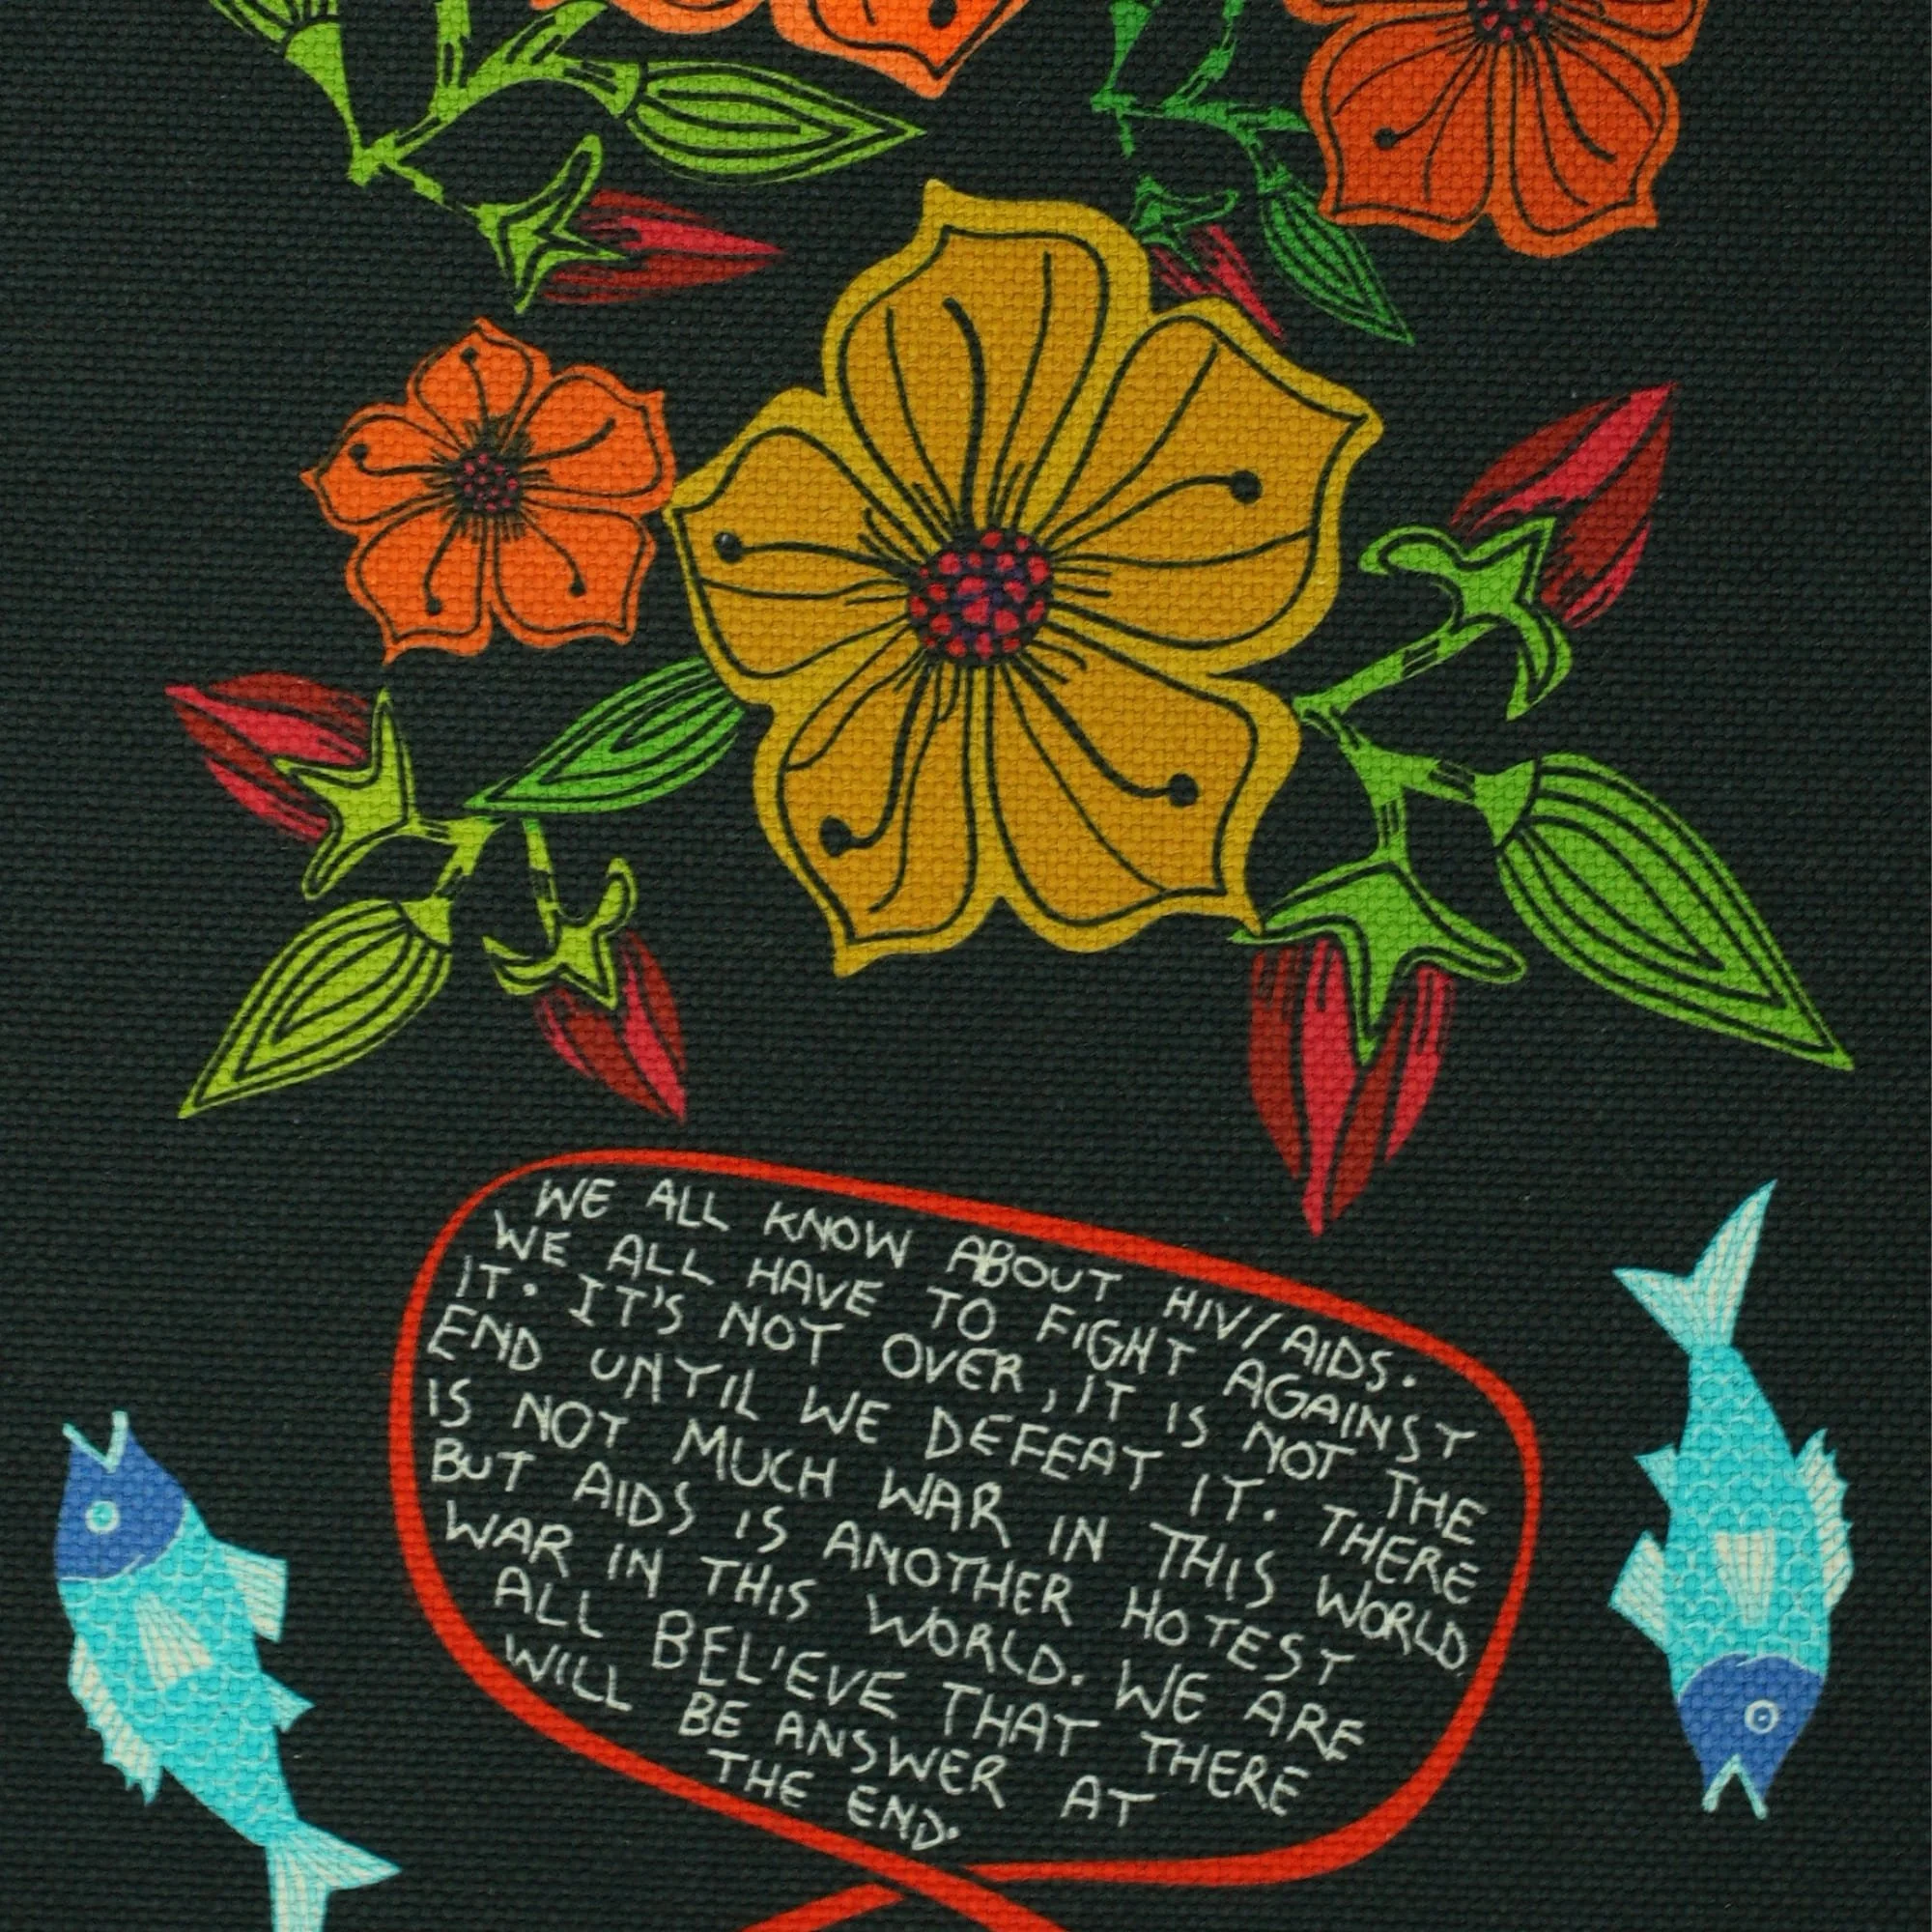 WE ALL KNOW ABOUT HIV/AIDS.
WE ALL HAVE TO FIGHT AGAINST
IT. IT'S NOT OVER, IT IS NOT THE
END UNTIL WE DEFEAT IT. THERE
IS NOT MUCH WAR IN THIS WORLD.
BUT AIDS IS ANOTHER HOTEST
WAR IN THIS WORLD. WE ARE
ALL BELIEVE THAT THERE
WILL BE ANSWER AT
THE END.